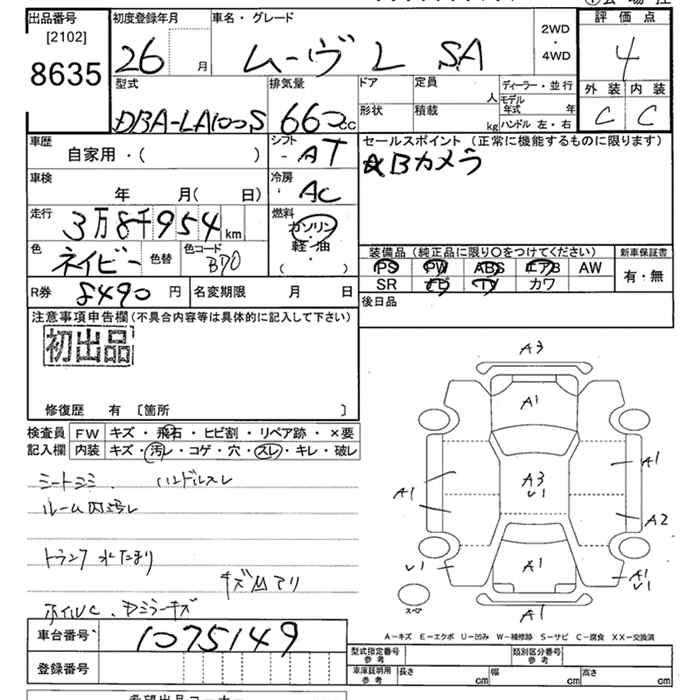 出品番号
[2102]
8635
初度登録年月
26 月
車名・グレード
ムーヴ L SA
2WD
・
4WD
評価点
4
外装 内装
C C
型式
DBA-LA100S
排気量
660cc
ドア
定員
人
形状
積載
kg
ディーラー・並行
モデル年式 年
ハンドル 左・右
車歴
自家用・( )
シフト
-AT
セールスポイント (正常に機能するものに限ります)
☆Bカメラ
車検
年 月( 日)
冷房
AC
走行
3万8千954km
燃料
ガソリン
軽・油
( )
色
ネイビー
色替
色コード
B70
装備品 (純正品に限り○をつけてください)
PS PW ABS エアB AW
SR ナビ TV カワ
新車保証書
有・無
R券 8490円
名変期限 月 日
後日品
注意事項申告欄(不具合内容等は具体的に記入して下さい)
初出品
修復歴 有 [箇所 ]
検査員記入欄
FW キズ・飛石・ヒビ割・リペア跡・×要
内装 キズ・汚レ・コゲ・穴・スレ・キレ・破レ
シートヨゴミ、ハンドルスレ
ルーム内汚レ
トランク水たまり
キズ凹アリ
ホイルC、Dミラーキズ
A3
A1
A1
A3
U1
A1
A2
U1
A1
A1
U1
A1
スペア
A-キズ E-エクボ U-凹み W-補修跡 S-サビ C-腐食 XX-交換済
車台番号
1075149
登録番号
型式指定番号
参考
類別区分番号
参考
車庫証明用
参考
長さ cm
幅 cm
高さ cm